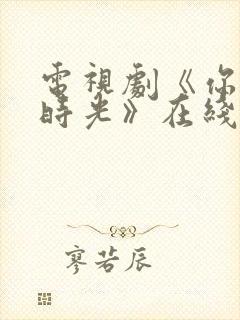 電視劇《你
時光》在綫
寥若辰